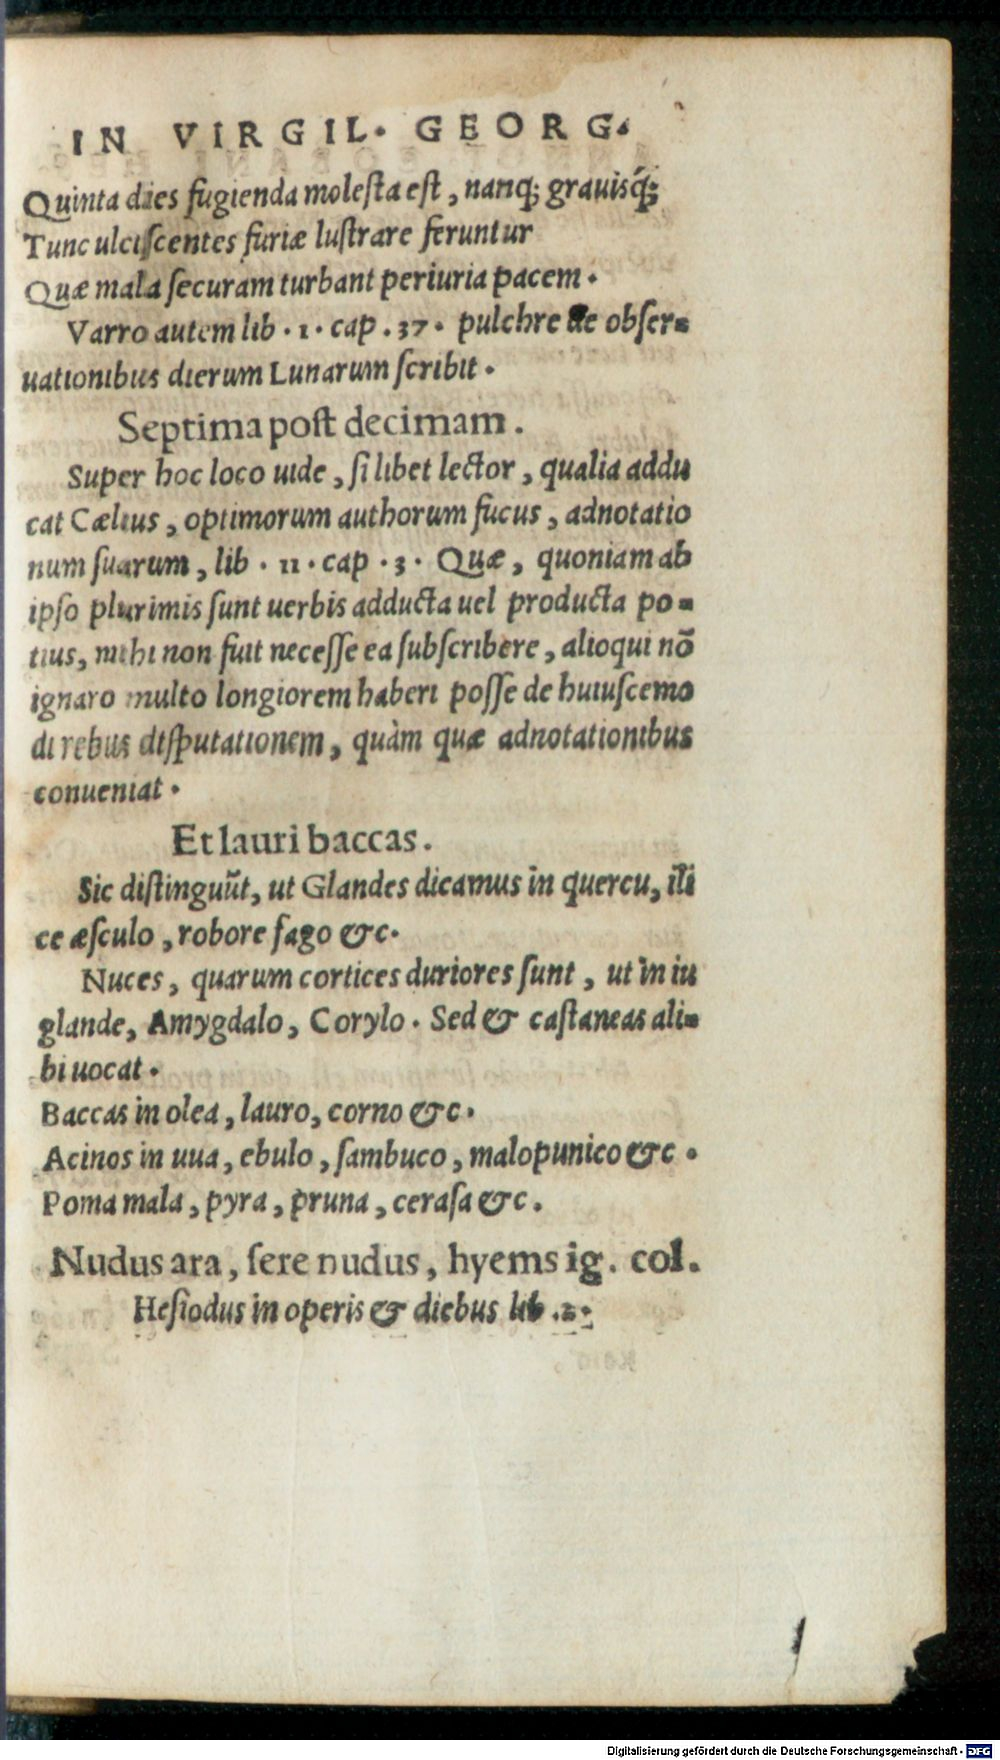 IN VIRGIL. GEORG.
Quinta dies fugienda molesta est, nanq; grauisq́;
Tunc ulciscentes furiæ lustrare feruntur
Quæ mala securam turbant periuria pacem.
Varro autem lib. 1. cap. 37. pulchre de obser-
uationibus dierum Lunarum scribit.
Septima post decimam.
Super hoc loco uide, si libet lector, qualia addu
cat Cælius, optimorum authorum fucus, adnotatio
num suarum, lib. 11. cap. 3. Quæ, quoniam ab
ipso plurimis sunt uerbis adducta uel producta po-
tius, mihi non fuit necesse ea subscribere, alioqui nō
ignaro multo longiorem haberi posse de huiuscemo
di rebus disputationem, quàm quæ adnotationibus
conueniat.
Et lauri baccas.
Sic distinguūt, ut Glandes dicamus in quercu, ili
ce æsculo, robore fago &c.
Nuces, quarum cortices duriores sunt, ut in iu
glande, Amygdalo, Corylo. Sed & castaneas ali-
bi uocat.
Baccas in olea, lauro, corno &c.
Acinos in uua, ebulo, sambuco, malopunico &c.
Poma mala, pyra, pruna, cerasa &c.
Nudus ara, sere nudus, hyems ig. col.
Hesiodus in operis & diebus lib. 2.
Digitalisierung gefördert durch die Deutsche Forschungsgemeinschaft - DFG